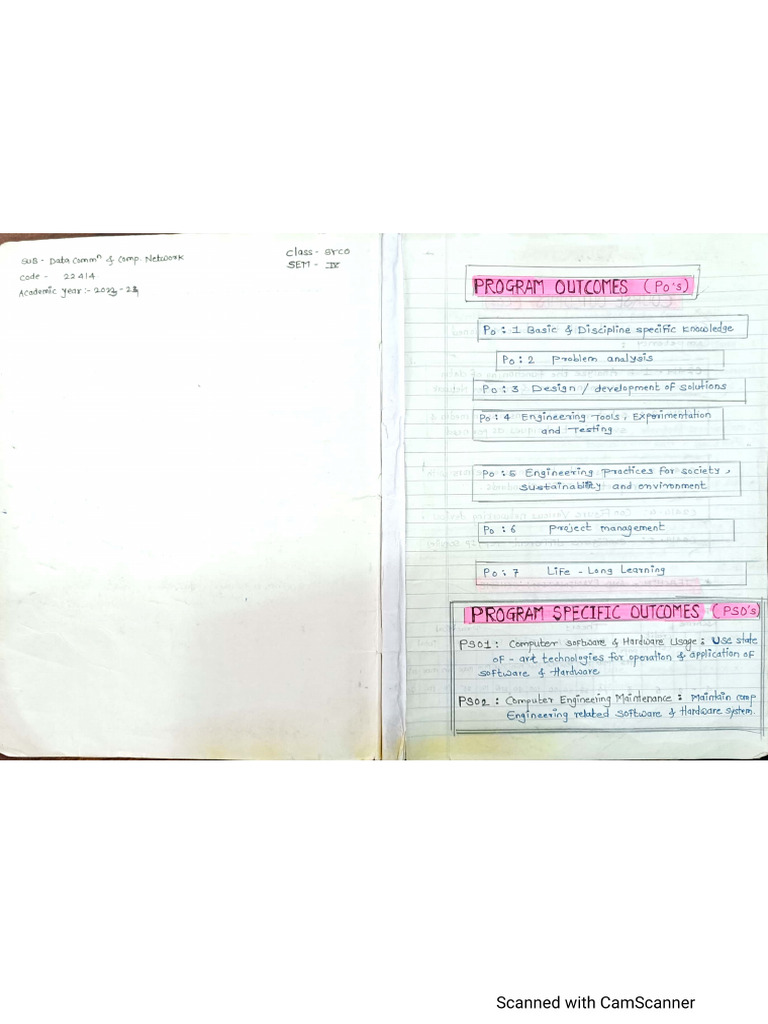 SUB - Data Commⁿ & Comp. Network
Code - 22414
Academic year :-
Class - SYCO
SEM - IV
PROGRAM OUTCOMES (Po's)
Po : 1 Basic & Discipline specific knowledge
Po : 2 Problem analysis
Po : 3 Design / development of solutions
Po : 4 Engineering Tools, Experimentation
and Testing
Po : 5 Engineering Practices for society,
Sustainability and environment
Po : 6 Project management
Po : 7 Life - Long Learning
PROGRAM SPECIFIC OUTCOMES (PSO's)
PSO1 : Computer Software & Hardware Usage : Use state
of - art technologies for operation & application of
Software & Hardware
PSO2 : Computer Engineering Maintenance : Maintain comp
Engineering related Software & Hardware System.
Scanned with CamScanner